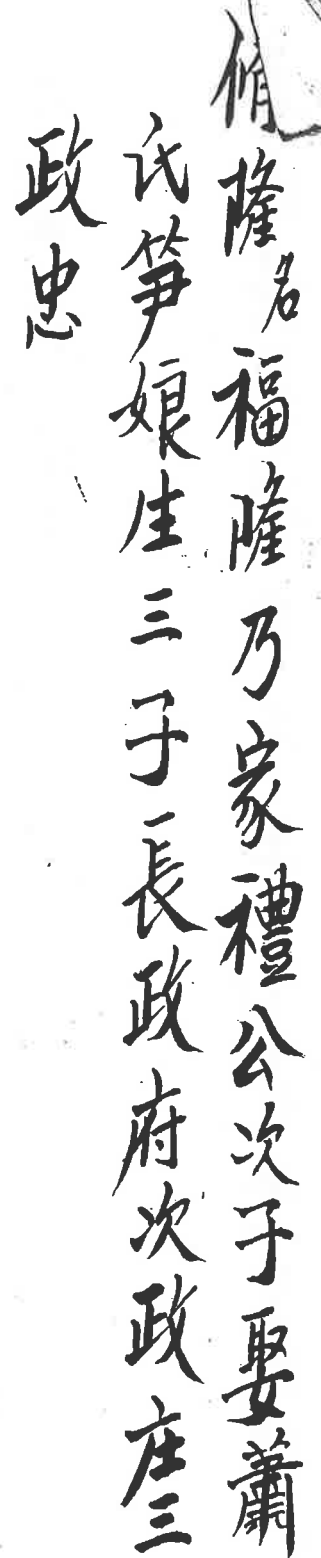 脩隆名福隆乃家禮公次子娶蕭
氏笋娘生三子長政府次政庄三
政忠